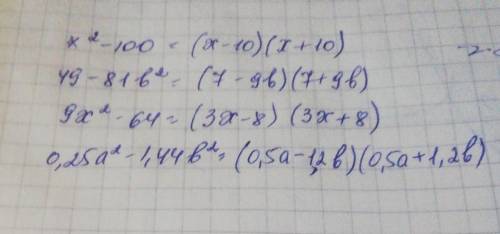 x² - 100 = (x - 10)(x + 10)
49 - 81b² = (7 - 9b)(7 + 9b)
9x² - 64 = (3x - 8) (3x + 8)
0,25a² - 1,44b² = (0,5a - 1,2b)(0,5a + 1,2b)